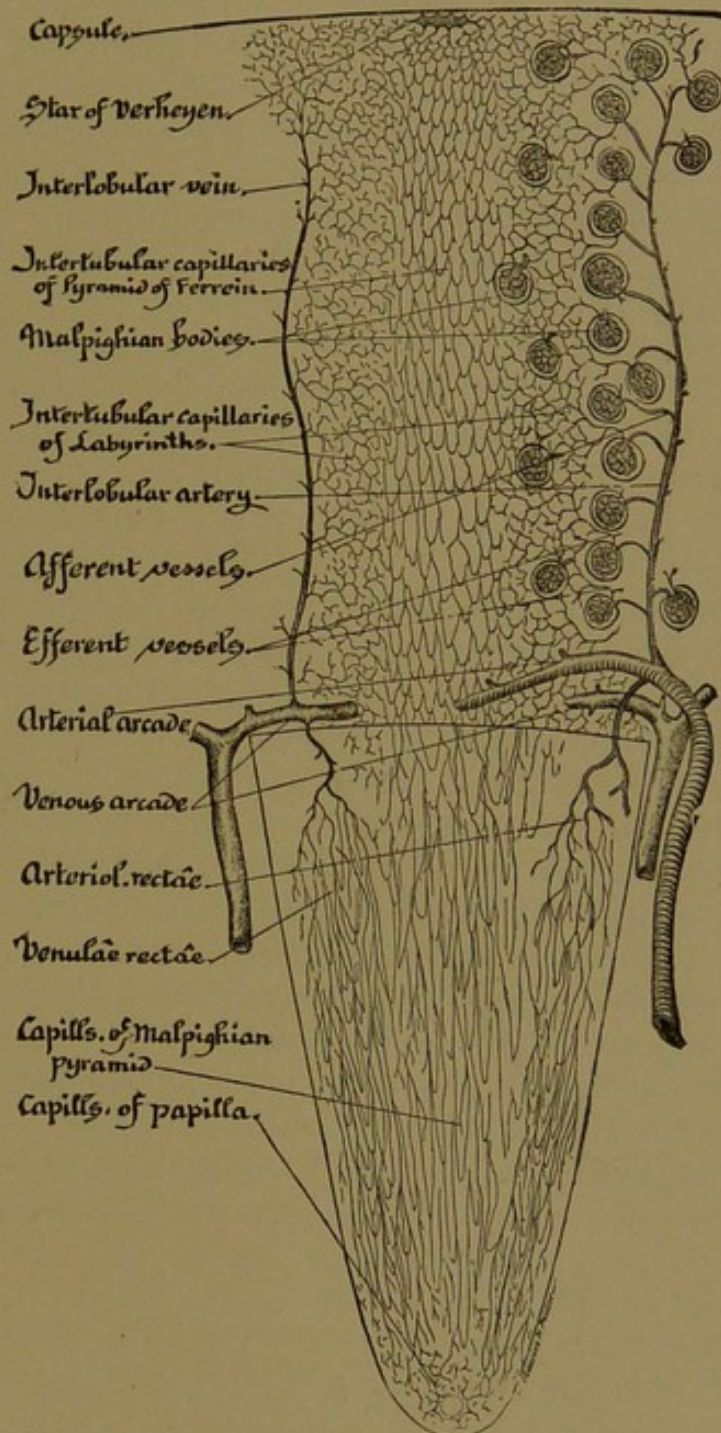 Capsule.
Star of Verheyen.
Interlobular vein.
Intertubular capillaries
of Pyramid of Ferrein.
Malpighian bodies.
Intertubular capillaries
of Labyrinths.
Interlobular artery.
Afferent vessels.
Efferent vessels.
Arterial arcade
Venous arcade
Arteriol. rectæ
Venulæ rectæ.
Capills. of Malpighian
pyramid
Capills. of papilla.